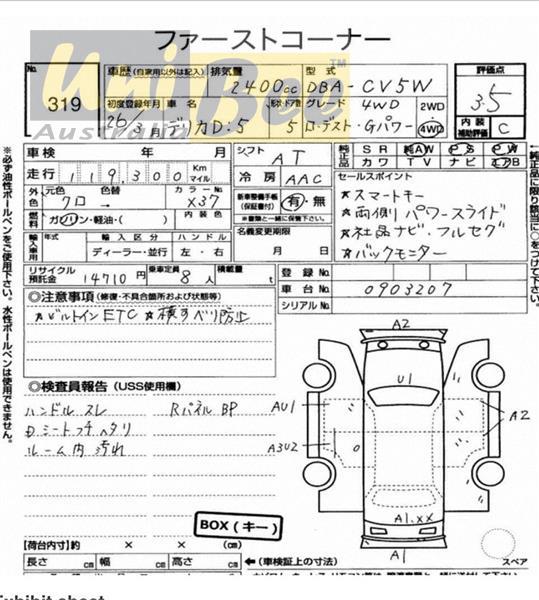 ファーストコーナー
Uni Bee
Australia
No.
319
車歴 (自家用以外は記入) 排気量 型式
2400cc DBA-CV5W
初度登録年月 車名 ドア・形状 グレード 4WD 2WD・4WD
26/3月 デリカD:5 5 ローデスト・Gパワー
評価点
3.5
内装補助評価 C
車検 年 月
走行 119,300 Km マイル
シフト AT
冷房 AAC
外色 元色 色替 カラーNo.
クロ→ X37
燃料 ガソリン・軽油・( ) 内装色
新車整備手帳(保証書付) 有・無
※書類と一緒に保管して下さい。
名義変更期限
月 日
輸入車 年式 輸入区分 ハンドル
ディーラー・並行 左・右
リサイクル預託金 14710円 乗車定員 8人 積載量 t
純正品 SR 純AW PS PW
カワ TV ナビ エアB
セールスポイント
☆スマートキー
☆両側パワースライド
☆社品ナビ・フルセグ
☆バックモニター
登録No.
車台No. 0903207
シリアルNo.
◎注意事項 (修復・不具合箇所および状態等)
☆ビルトインETC ☆横すべり防止
◎検査員報告 (USS使用欄)
ハンドルスレ RパネルBP
ルーム内汚れ
BOX(キー)
A2
U1
AU1
A2
A3U2
A1.XX
A1
【荷台内寸】約 × × (cm)
長さ cm 幅 cm 高さ cm
←(車検証上の寸法)
スペア
※必ず油性ボールペンをご使用下さい。水性ボールペンは使用できません。